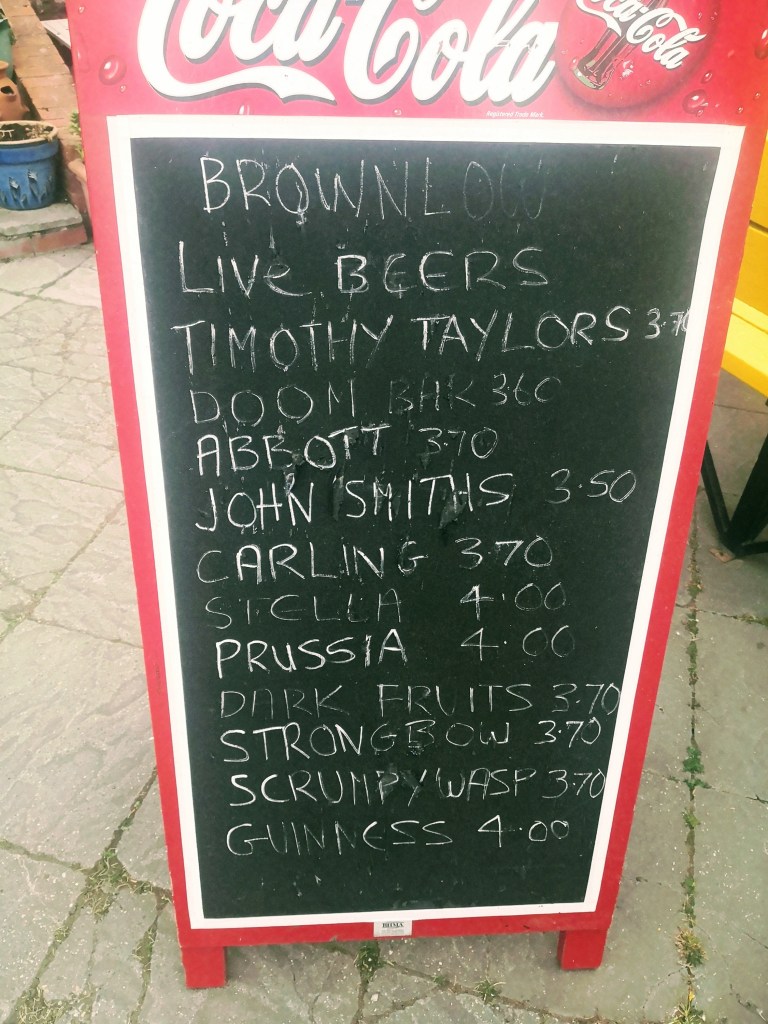 Coca-Cola
Coca-Cola
Registered Trade Mark
BROWNLOW
LIVe BEERS
TIMOTHY TAYLORS 3.70
DOOM BAR 360
ABBOTT 3.70
JOHN SMITHS 3.50
CARLING 3.70
STELLA 4.00
PRUSSIA 4.00
DARK FRUITS 3.70
STRONGBOW 3.70
SCRUMPY WASP 3.70
GUINNESS 4.00